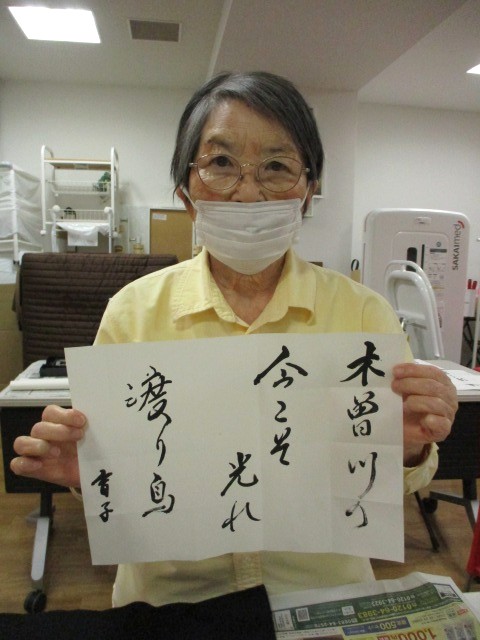 木曽川の
今こそ
光れ
渡り鳥
育子
SAKAImed